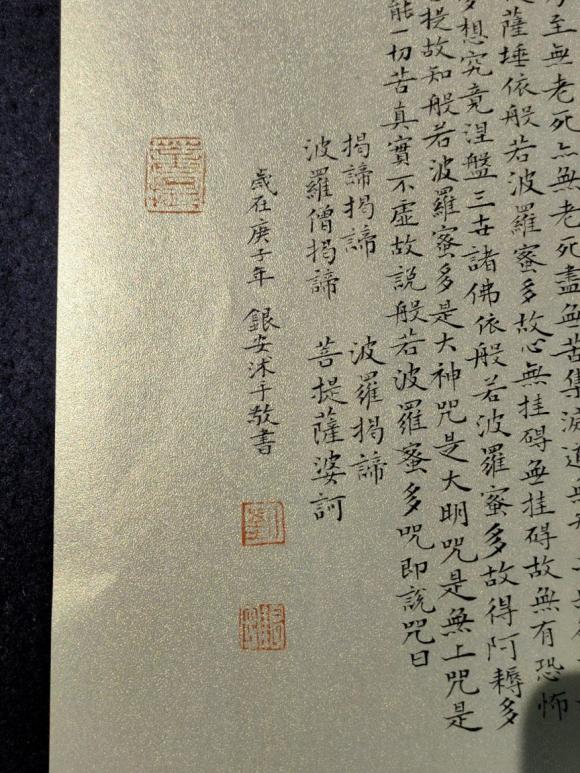 至無老死亦無老死盡無苦集滅道無
薩埵依般若波羅蜜多故心無挂碍無挂碍故無有恐怖
想究竟涅盤三世諸佛依般若波羅蜜多故得阿耨多
提故知般若波羅蜜多是大神咒是大明咒是無上咒是
能一切苦真實不虛故說般若波羅蜜多咒即說咒曰
揭諦揭諦 波羅揭諦
波羅僧揭諦 菩提薩婆訶
歲在庚子年 銀安沐手敬書
劉